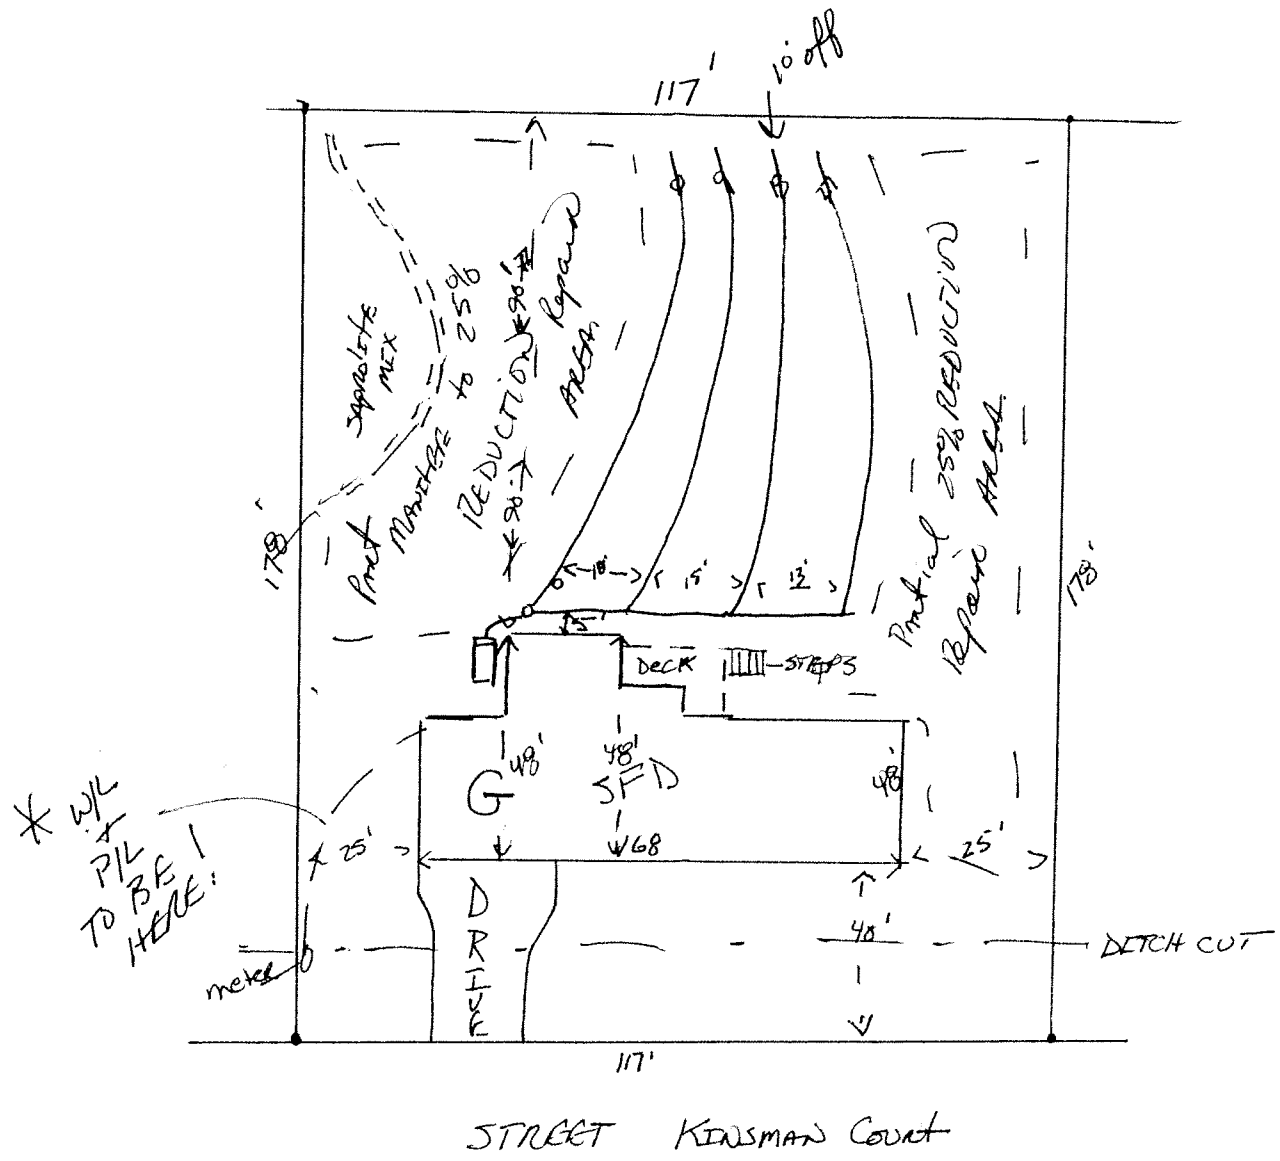 117'
10' off
Saprolite
MIX
Part
MANIFER to 25%
REDUCTION
Repair
AREA
90'
90'
Partial 25% REDUCTION
Repair AREA
178'
178'
18'
15'
13'
5'
DECK
STEPS
G
48'
48'
SFD
48'
68
* W/L
+
P/L
TO BE
HERE!
25'
25'
DRIVE
40'
DITCH CUT
meter
117'
STREET KINSMAN Court